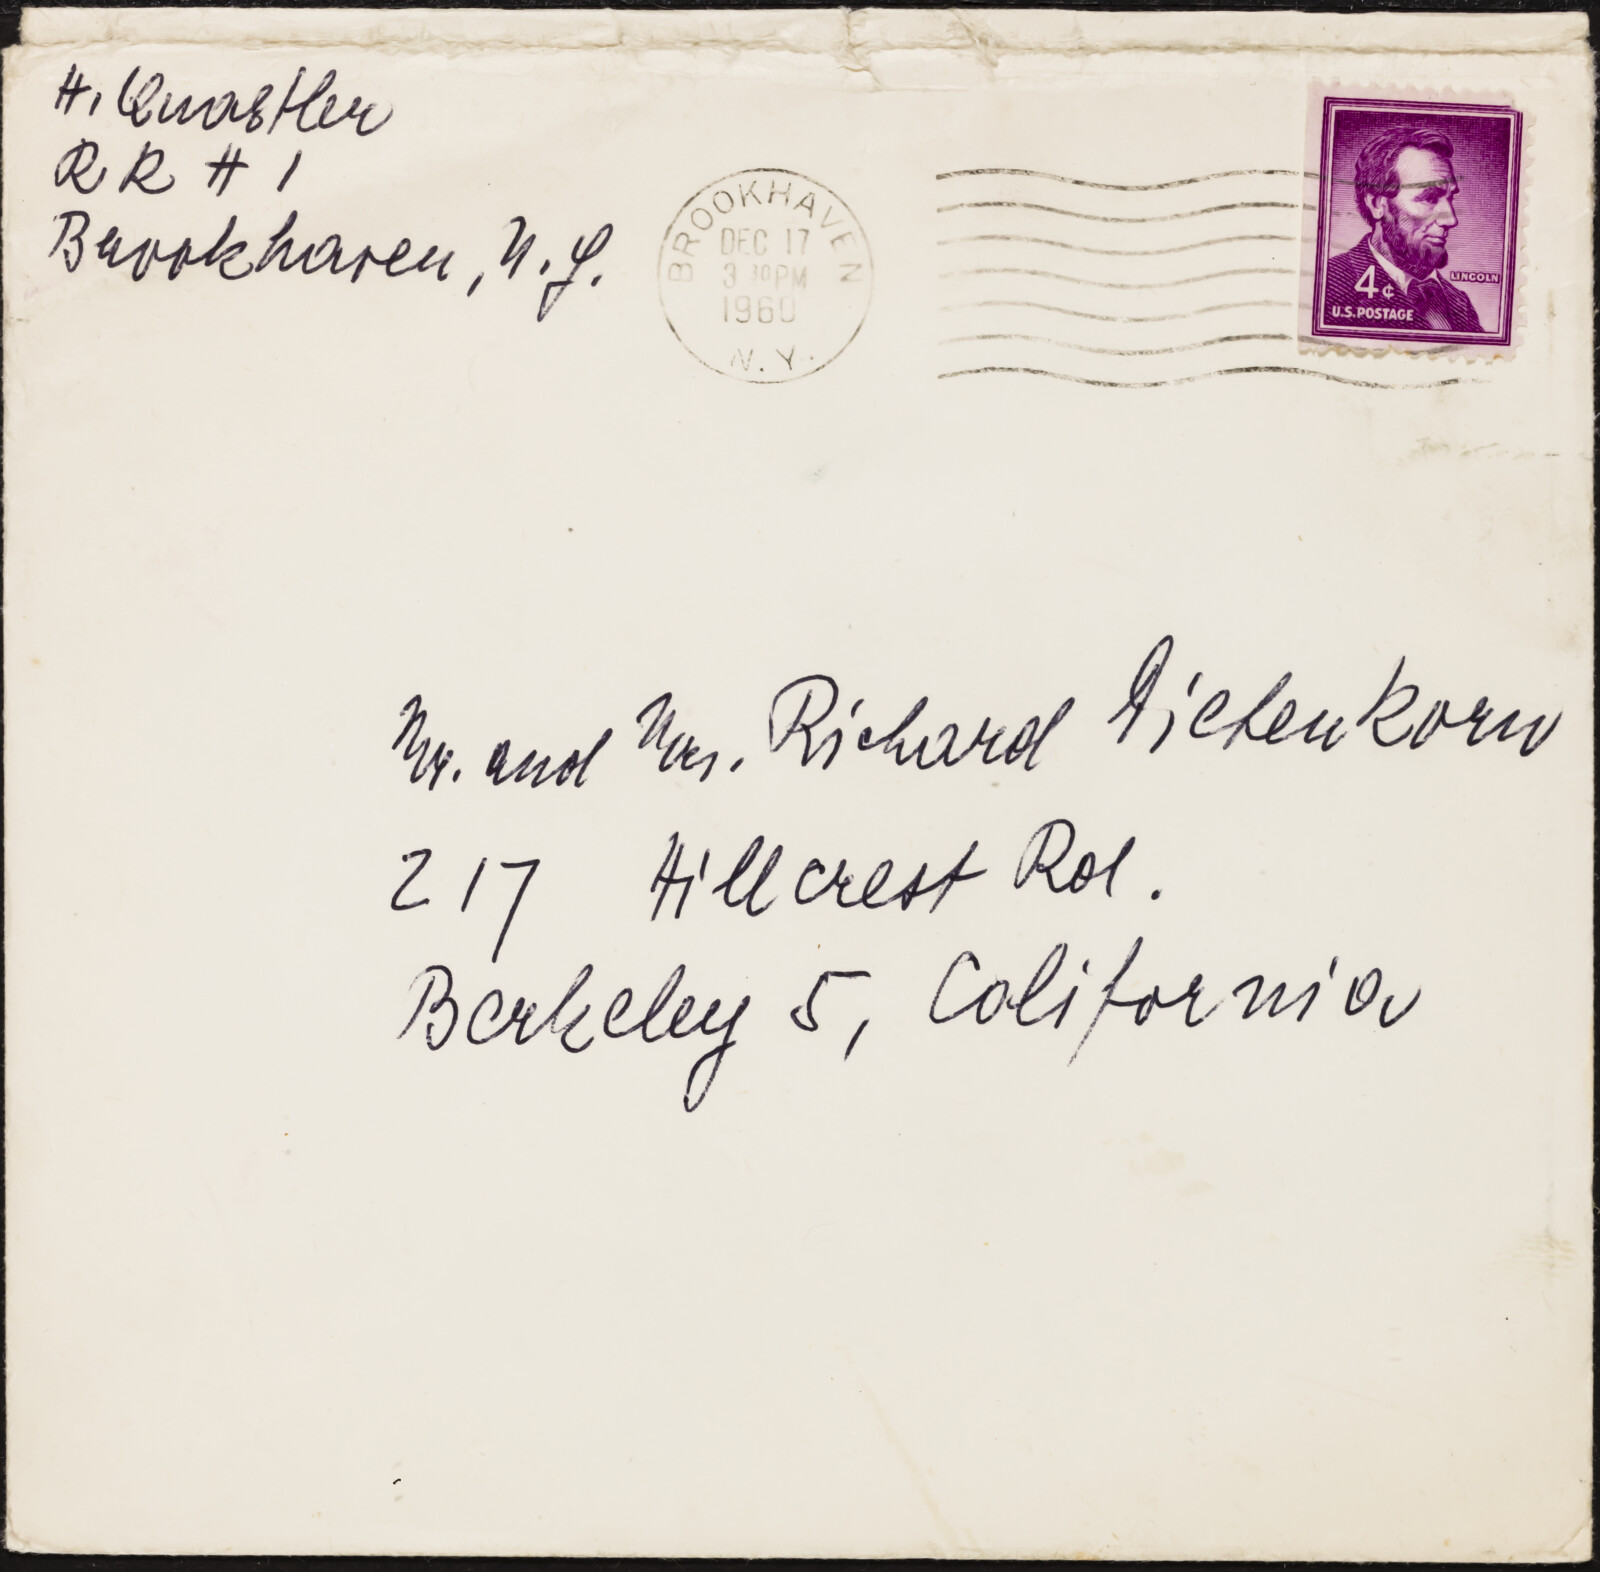 H. Quastler
RR # 1
Brookhaven, N.Y.
BROOKHAVEN
DEC 17
3 30 PM
1960
N. Y.
4¢
LINCOLN
U.S. POSTAGE
Mr. and Mrs. Richard Diebenkorn
217 Hillcrest Rd.
Berkeley 5, California